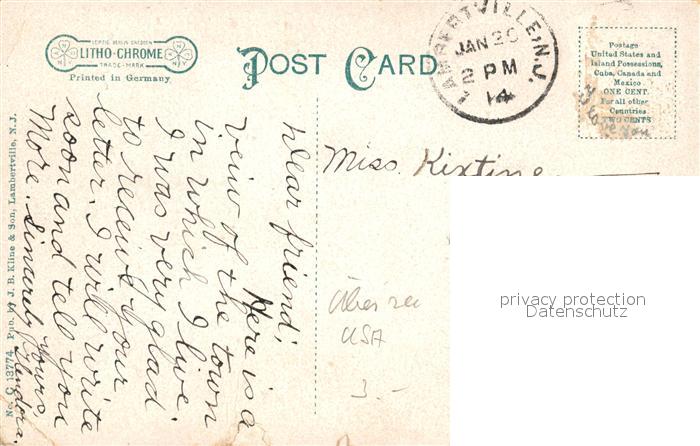 LEIPZIG BERLIN DRESDEN
LITHO-CHROME
TRADE-MARK
Printed in Germany
POST CARD
LAMBERTVILLE, N.J.
JAN 20
2 PM
14
Postage
United States and
Island Possessions,
Cuba, Canada and
Mexico
ONE CENT.
For all other
Countries
TWO CENTS
Miss. Kixtine
Dear friend;
Here is a
veiw of the town
in which I live.
I was very glad
to receive your
letter. I will write
soon and tell you
more. Sincerely yours,
No. C 13774 Pub. by J. B. Kline & Son, Lambertville, N.J.
USA
3.-
privacy protection
Datenschutz